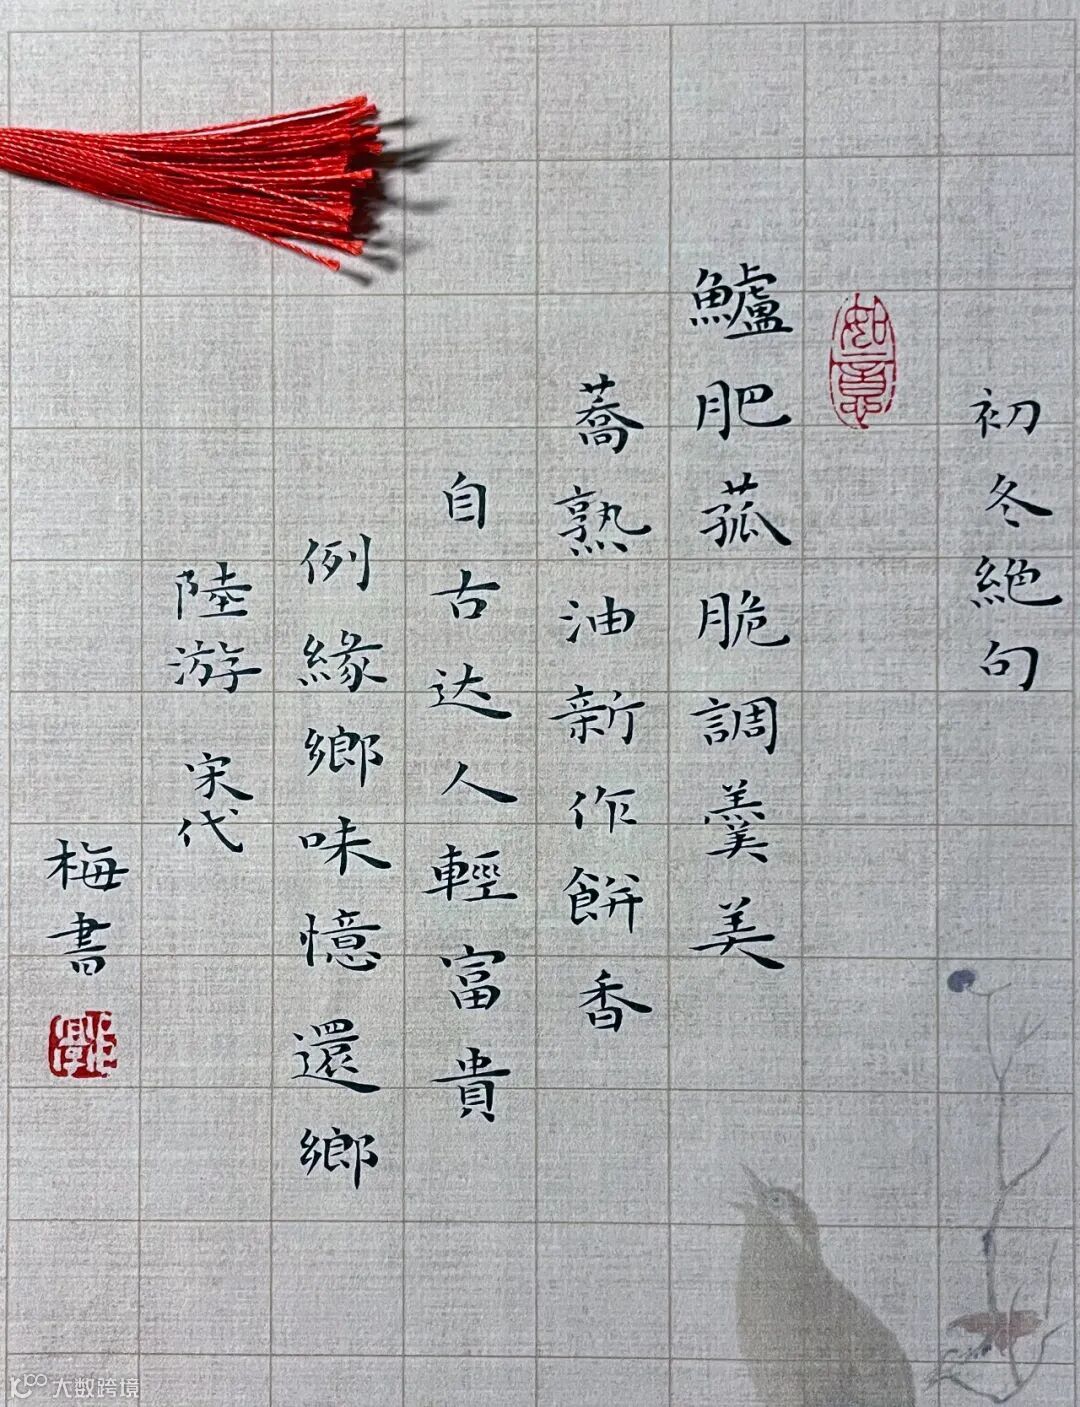 初冬絕句
如意
鱸肥菰脆調羹美
蕎熟油新作餅香
自古达人輕富貴
例緣鄉味憶還鄉
陸游 宋代
梅書
大数跨境